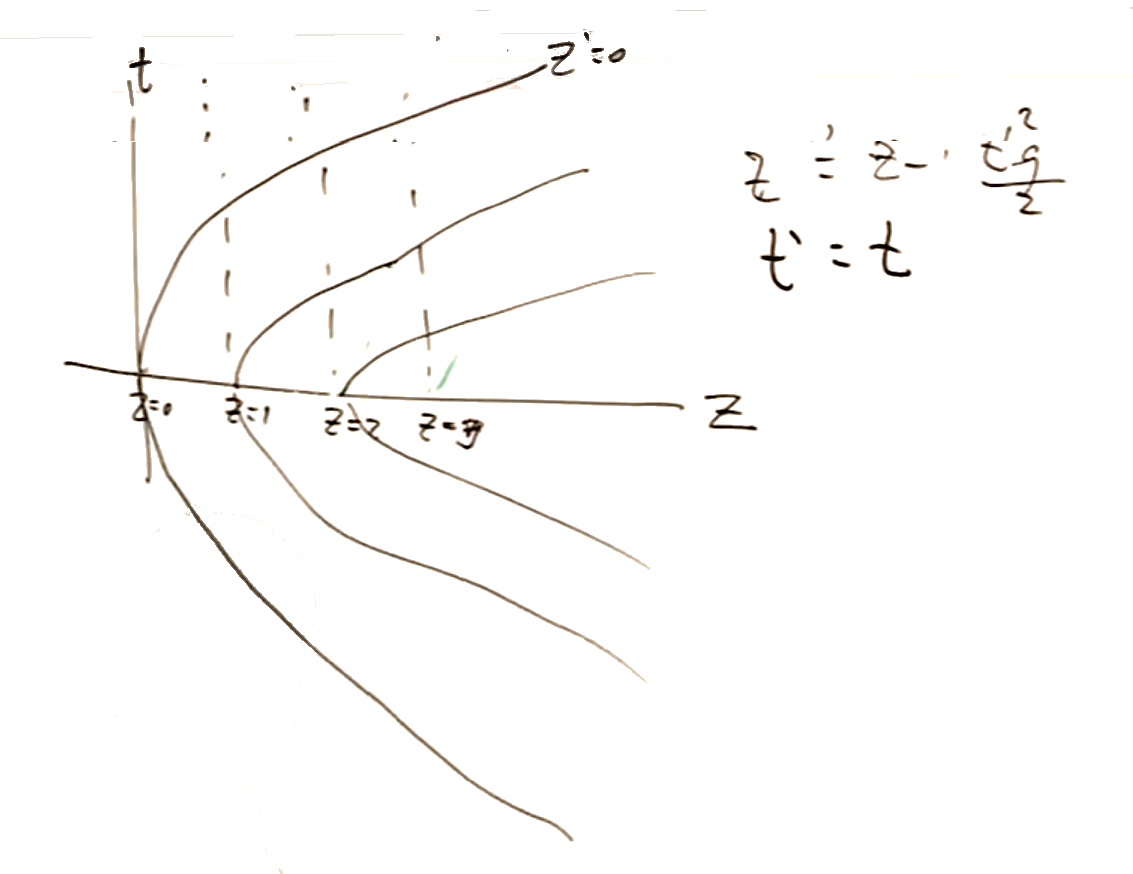 t
z'=0
z' = z - t'²g/2
t' = t
z=0 z=1 z=2 z=3
z